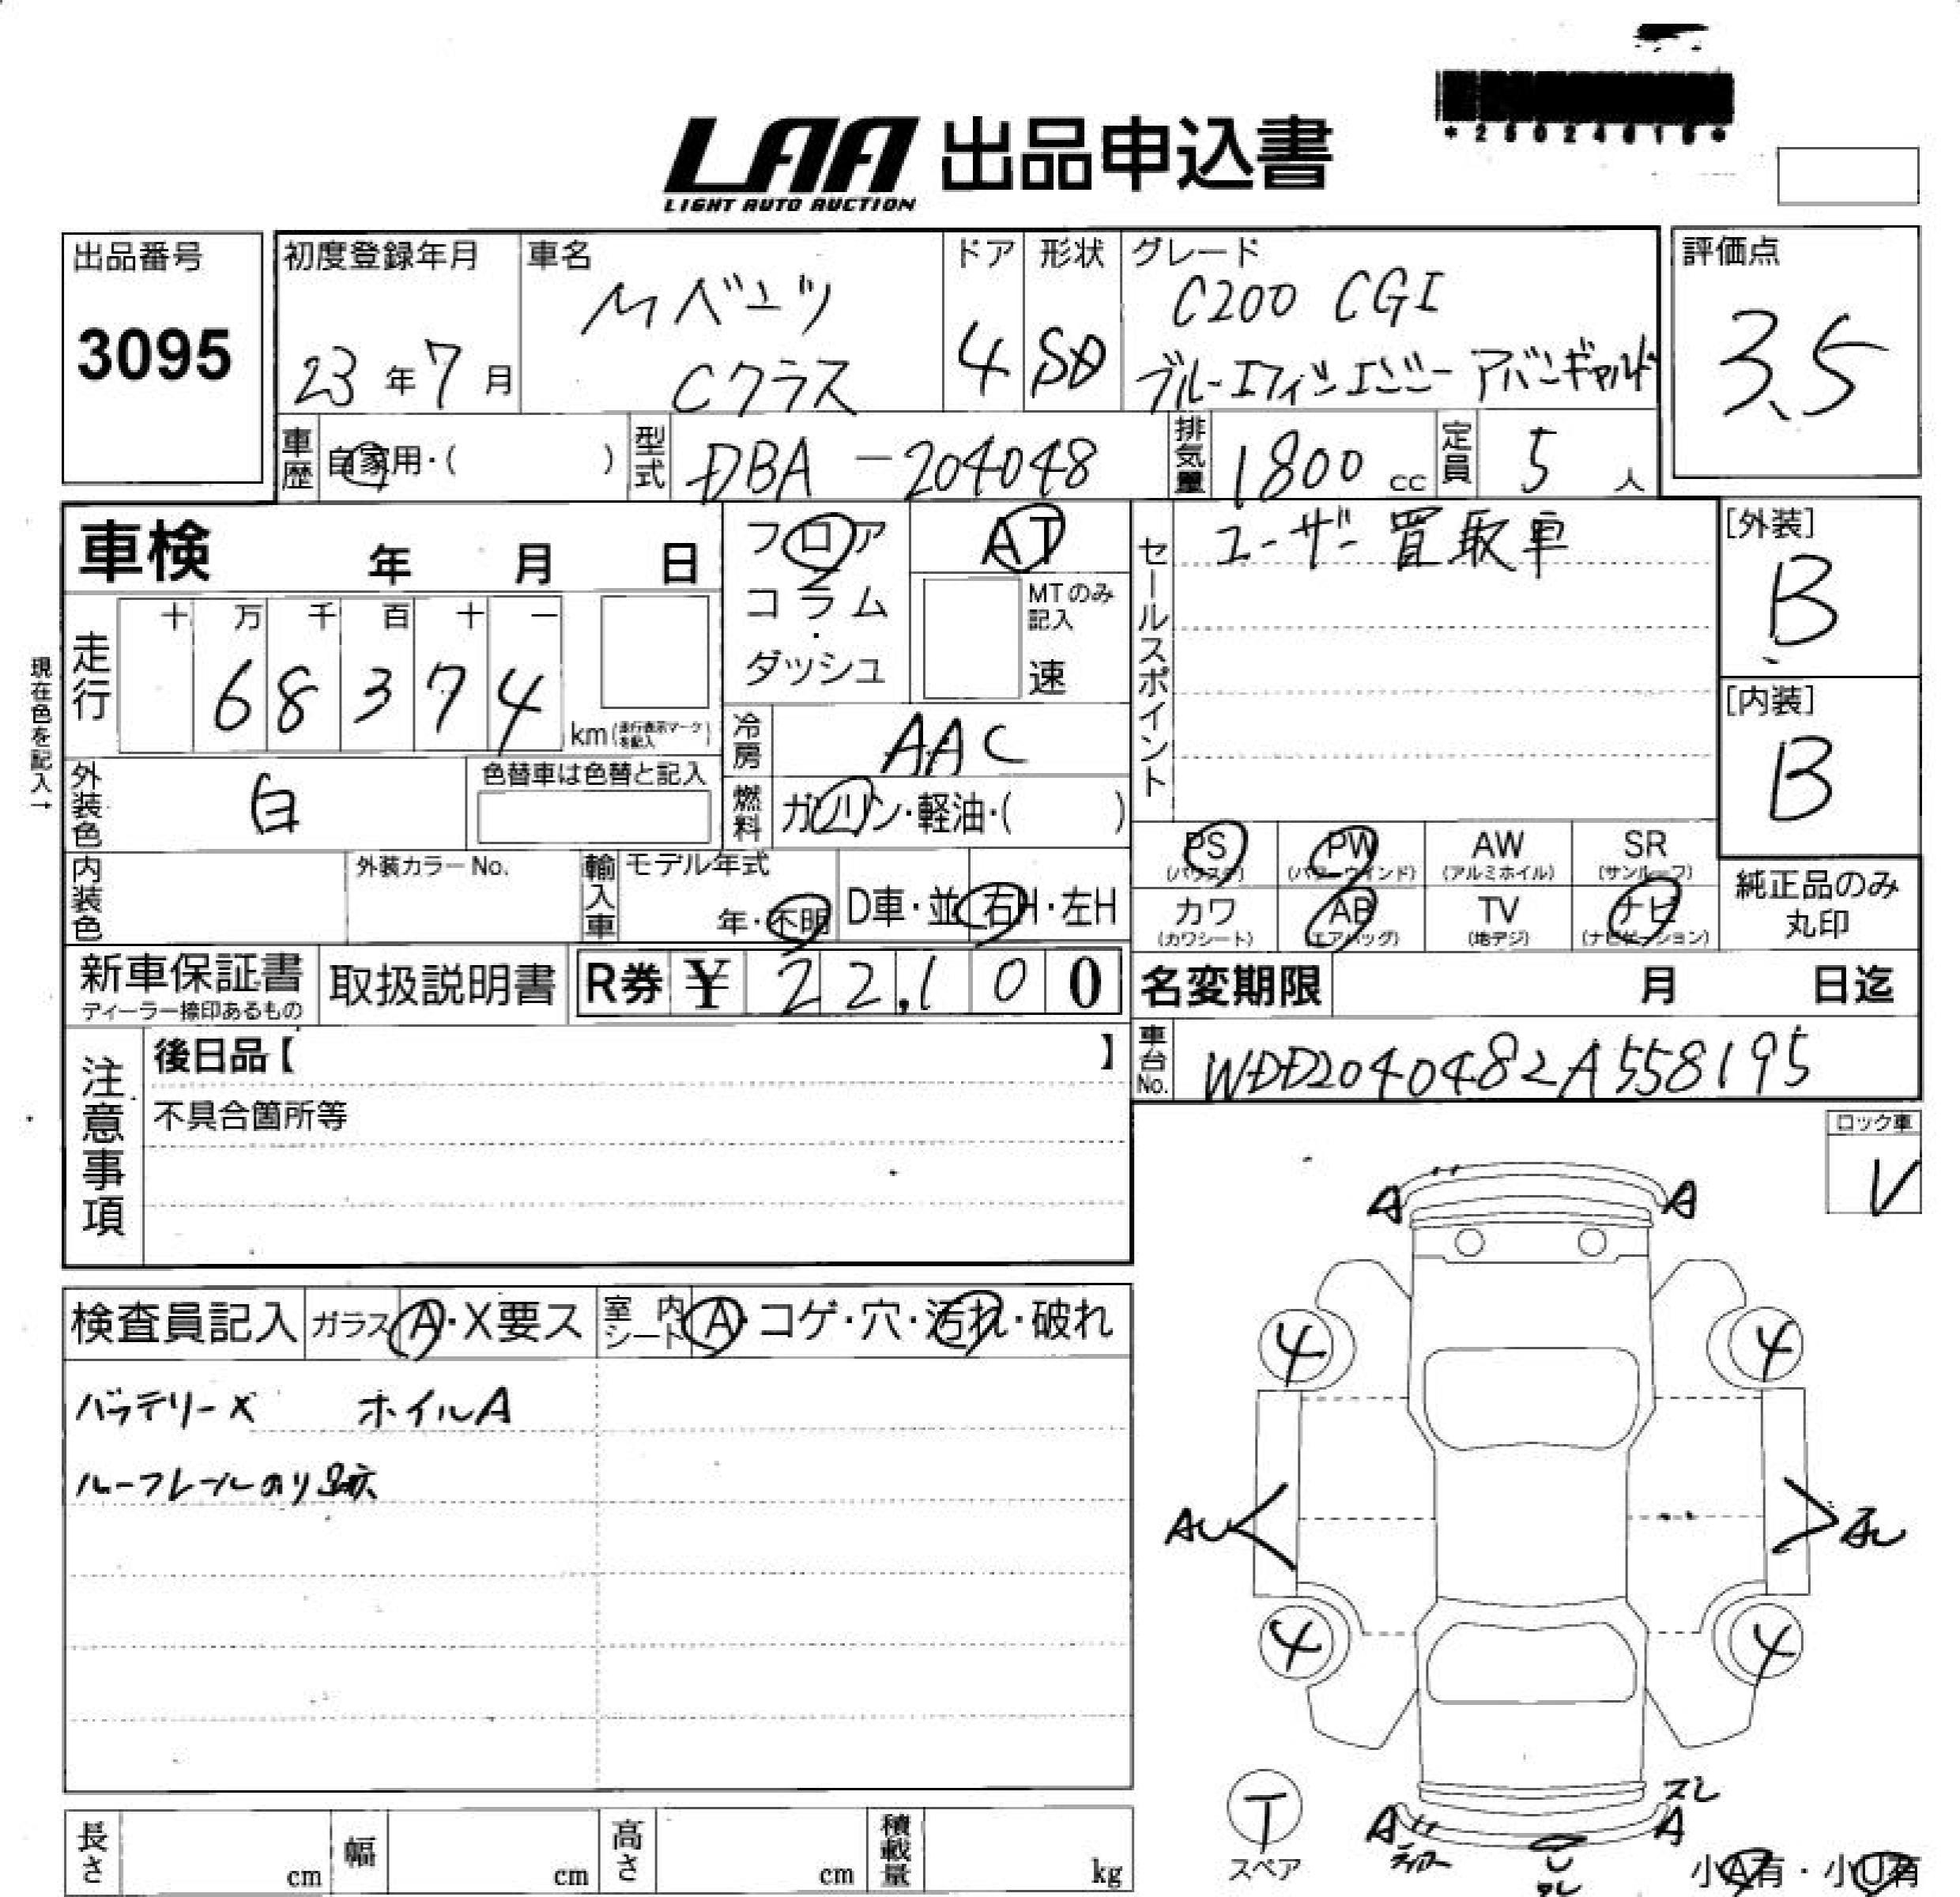 LAA 出品申込書
LIGHT AUTO AUCTION
出品番号
3095
初度登録年月
23年7月
車名
Mベンツ
Cクラス
ドア
4
形状
SD
グレード
C200 CGI
ブルーエフィシエンシー アバンギャルド
評価点
3.5
車歴
自家用・( )
型式
DBA-204048
排気量
1800 cc
定員
5 人
車検 年 月 日
フロア
コラム
・
ダッシュ
AT
MTのみ
記入
速
セールスポイント
ユーザー買取車
[外装]
B
[内装]
B
現在色を記入→
走行
十 万 千 百 十 一
6 8 3 7 4
km(走行表示マークを記入)
冷房
AAC
燃料
ガソリン・軽油・( )
外装色
白
色替車は色替と記入
内装色
外装カラーNo.
輸入車
モデル年式
年・不明
D車・並
右H・左H
PS
(パワステ)
PW
(パワーウインド)
AW
(アルミホイル)
SR
(サンルーフ)
カワ
(カワシート)
AB
(エアバッグ)
TV
(地デジ)
ナビ
(ナビゲーション)
純正品のみ
丸印
新車保証書
ディーラー捺印あるもの
取扱説明書
R券 ¥ 22,100
名変期限 月 日迄
車台No.
WDD2040482A558195
注意事項
後日品【 】
不具合箇所等
ロック車
V
検査員記入
ガラス A・X要ス
室内シート A・コゲ・穴・汚れ・破れ
バッテリーX ホイルA
ルーフレールのり跡
A A
4 4
AU
4 4
T
スペア
スレ
A A
小A有・小U有
長さ cm
幅 cm
高さ cm
積載量 kg